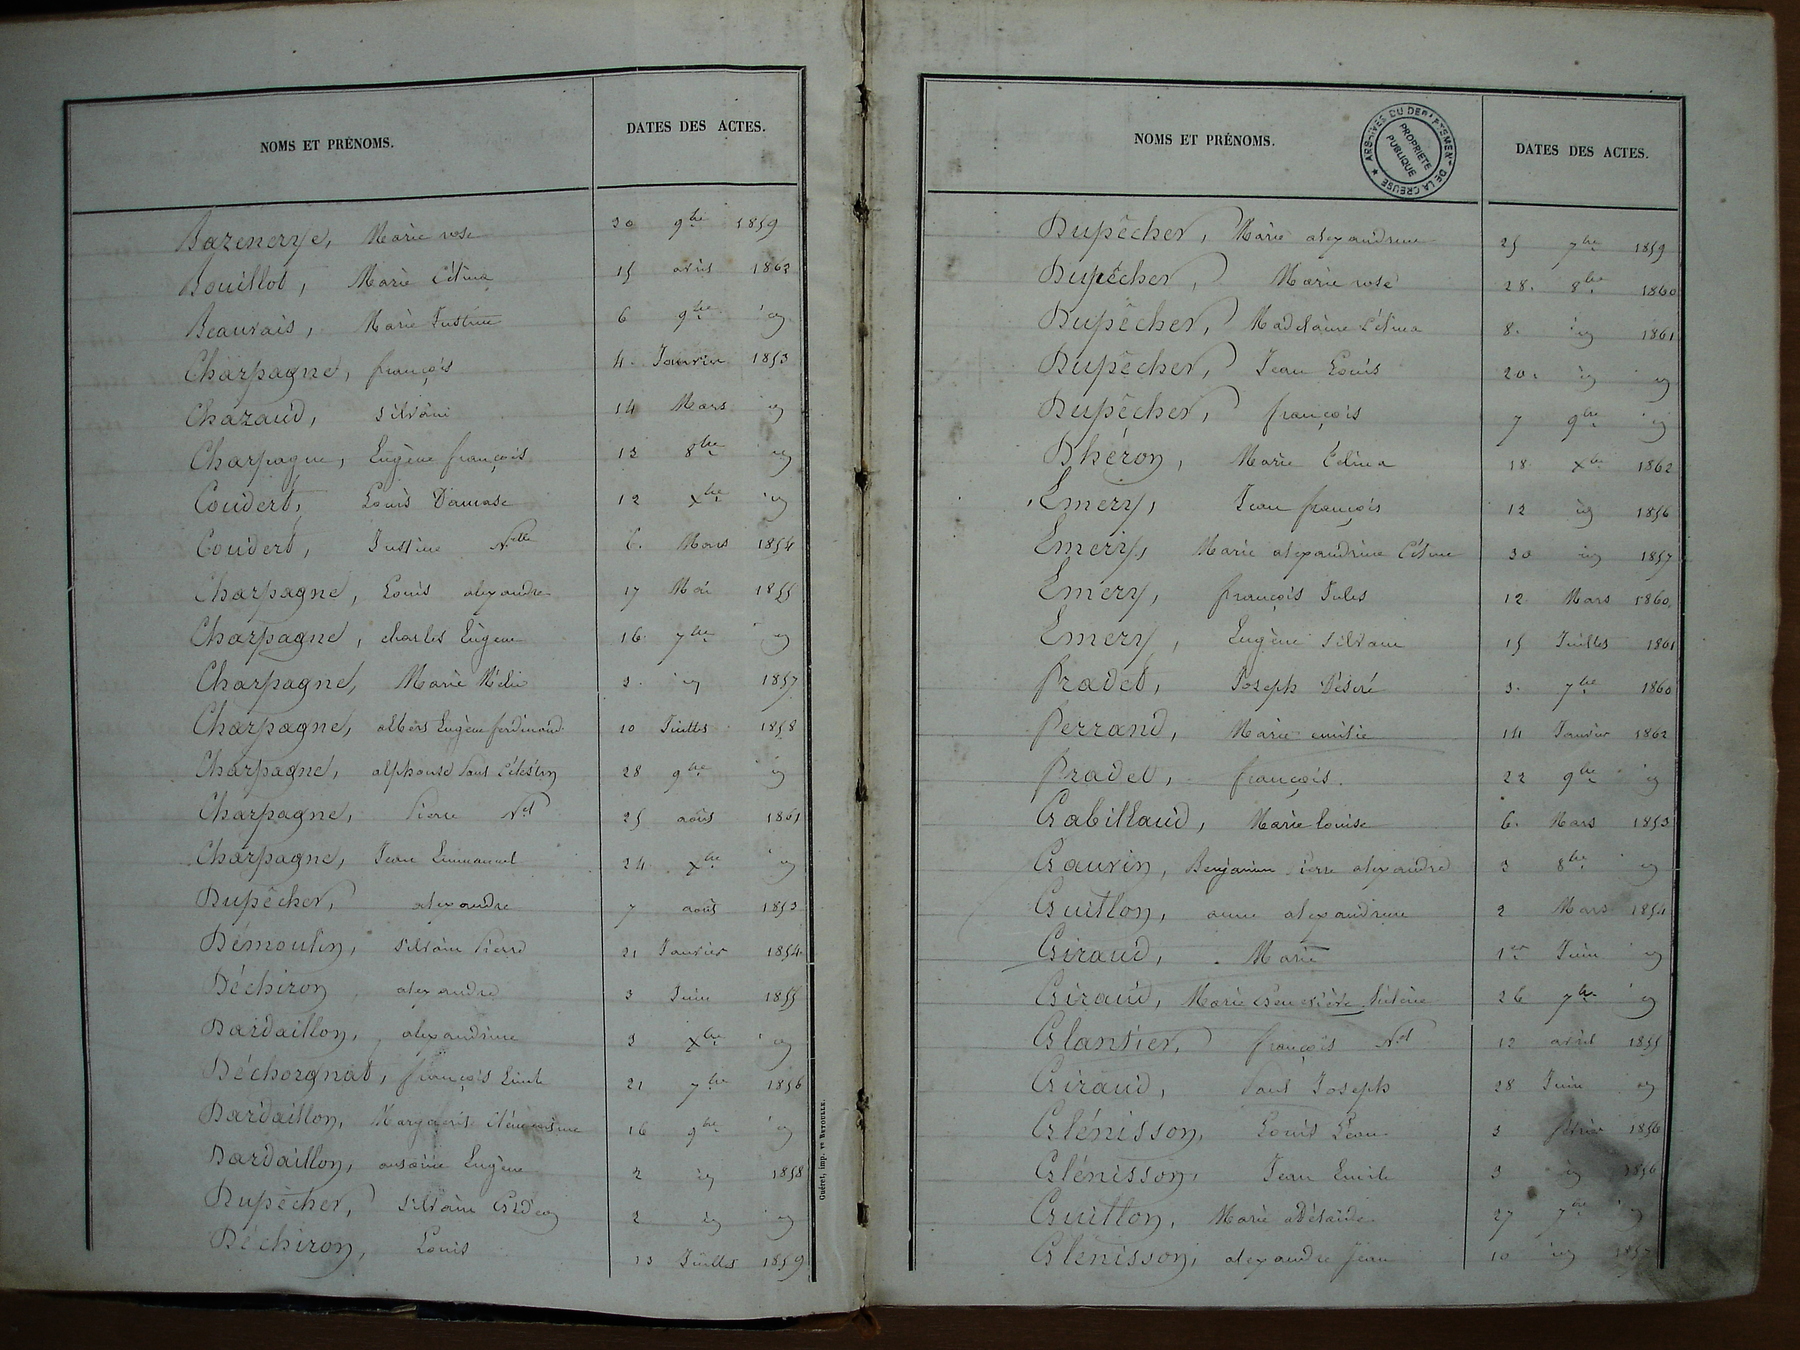 NOMS ET PRÉNOMS. DATES DES ACTES.
Bazenerye, Marie rose 30 9bre 1859
Bouillot, Marie Célina 15 avril 1862
Beauvais, Marie Justine 6 9bre id
Charpagne, françois 4 Janvier 1853
Chazaud, Silvain 14 Mars id
Charpagne, Eugène françois 13 8bre id
Coudert, Louis Damase 12 Xbre id
Coudert, Justine Nelle 6. Mars 1854
Charpagne, Louis alexandre 17 Mai 1855
Charpagne, charles Eugène 16 7bre id
Charpagne, Marie 3. id 1857
Charpagne, albert Eugène ferdinand 10 Juillet 1858
Charpagne, alphonse Paul Célestin 28 9bre id
Charpagne, Pierre Nel 25 août 1861
Charpagne, Jean Emmanuel 24 Xbre id
Dupêcher, alexandre 7 août 1853
Démoulin, Silvain Pierre 21 Janvier 1854
Déchiron, alexandre 3 Juin 1855
Dardaillon, alexandrine 3 Xbre id
Déchorgnat, françois Emile 21 7bre 1856
Dardaillon, 16 9bre id
Dardaillon, antoine Eugène 2 id 1858
Dupêcher, Silvain Gédéon 2 id id
Déchiron, Louis 13 Juillet 1859
Guéret, imp. ve BETOULLE.
NOMS ET PRÉNOMS. DATES DES ACTES.
ARCHIVES DU DEPARTEMENT DE LA CREUSE ★
PROPRIETE PUBLIQUE
Dupêcher, Marie alexandrine 25 7bre 1859
Dupêcher, Marie rose 28. 8bre 1860
Dupêcher, Madelaine Célina 8. id 1861
Dupêcher, Jean Louis 20. id id
Dupêcher, françois 7 9bre id
Dhéron, Marie Célina 18 Xbre 1862
Emery, Jean françois 12 id 1856
Emery, Marie alexandrine Céline 30 id 1857
Emery, françois Jules 12 Mars 1860
Emery, Eugène Silvain 15 Juillet 1861
fradet, Joseph Désiré 3. 7bre 1860
ferrand, Marie emilie 14 Janvier 1862
fradet, françois. 22 9bre id
Gabillaud, Marie louise 6. Mars 1853
Gaurin, Benjamin Pierre alexandre 3 8bre id
Guillon, anne alexandrine 2 Mars 1854
Giraud, Marie 1er Juin id
Giraud, Marie Geneviève 26 7bre id
Glantier, françois Nel 12 avril 1855
Giraud, Paul Joseph 28 Juin id
Glénisson, Louis Léon 3 février 1856
Glénisson, Jean Emile 3 id 1856
Guillon, Marie adélaide 27 7bre id
Glénisson, alexandre Jean 10 id 1857